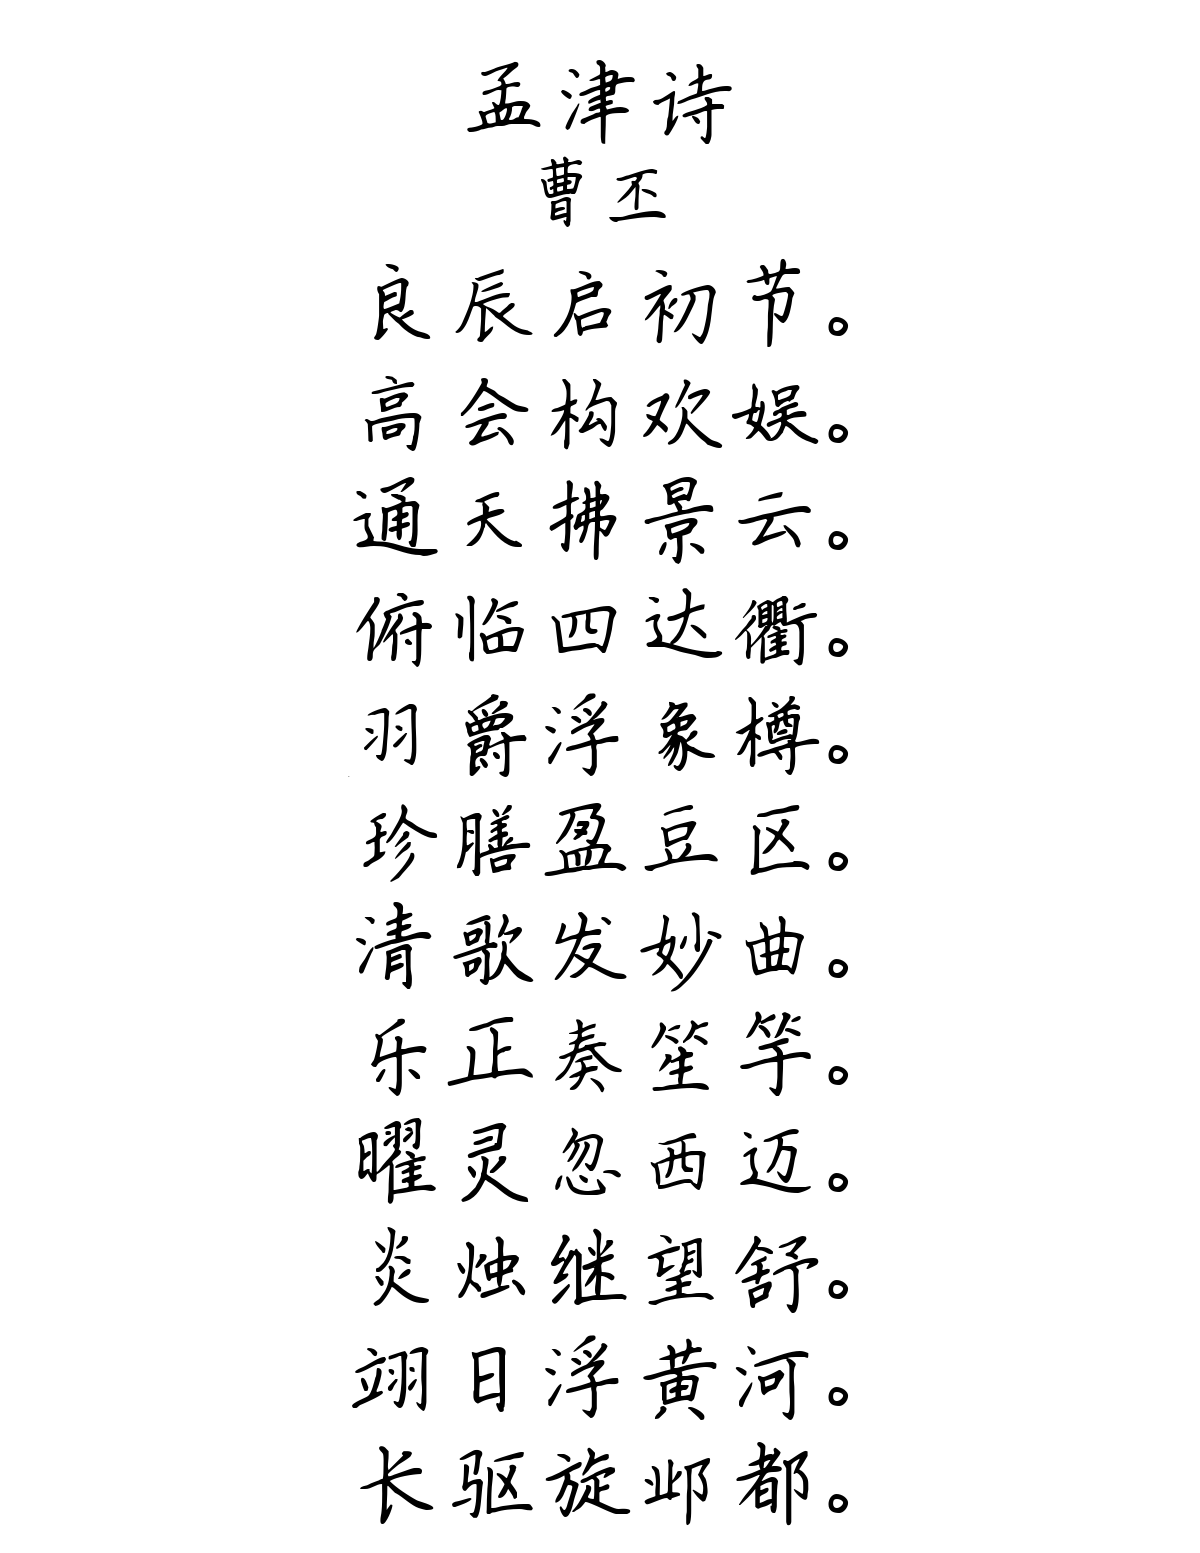 孟津诗
曹丕
良辰启初节。
高会构欢娱。
通天拂景云。
俯临四达衢。
羽爵浮象樽。
珍膳盈豆区。
清歌发妙曲。
乐正奏笙竽。
曜灵忽西迈。
炎烛继望舒。
翊日浮黄河。
长驱旋邺都。